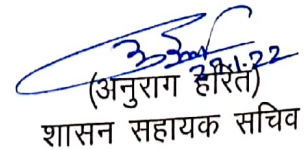 29.1.22
(अनुराग हरित)
शासन सहायक सचिव